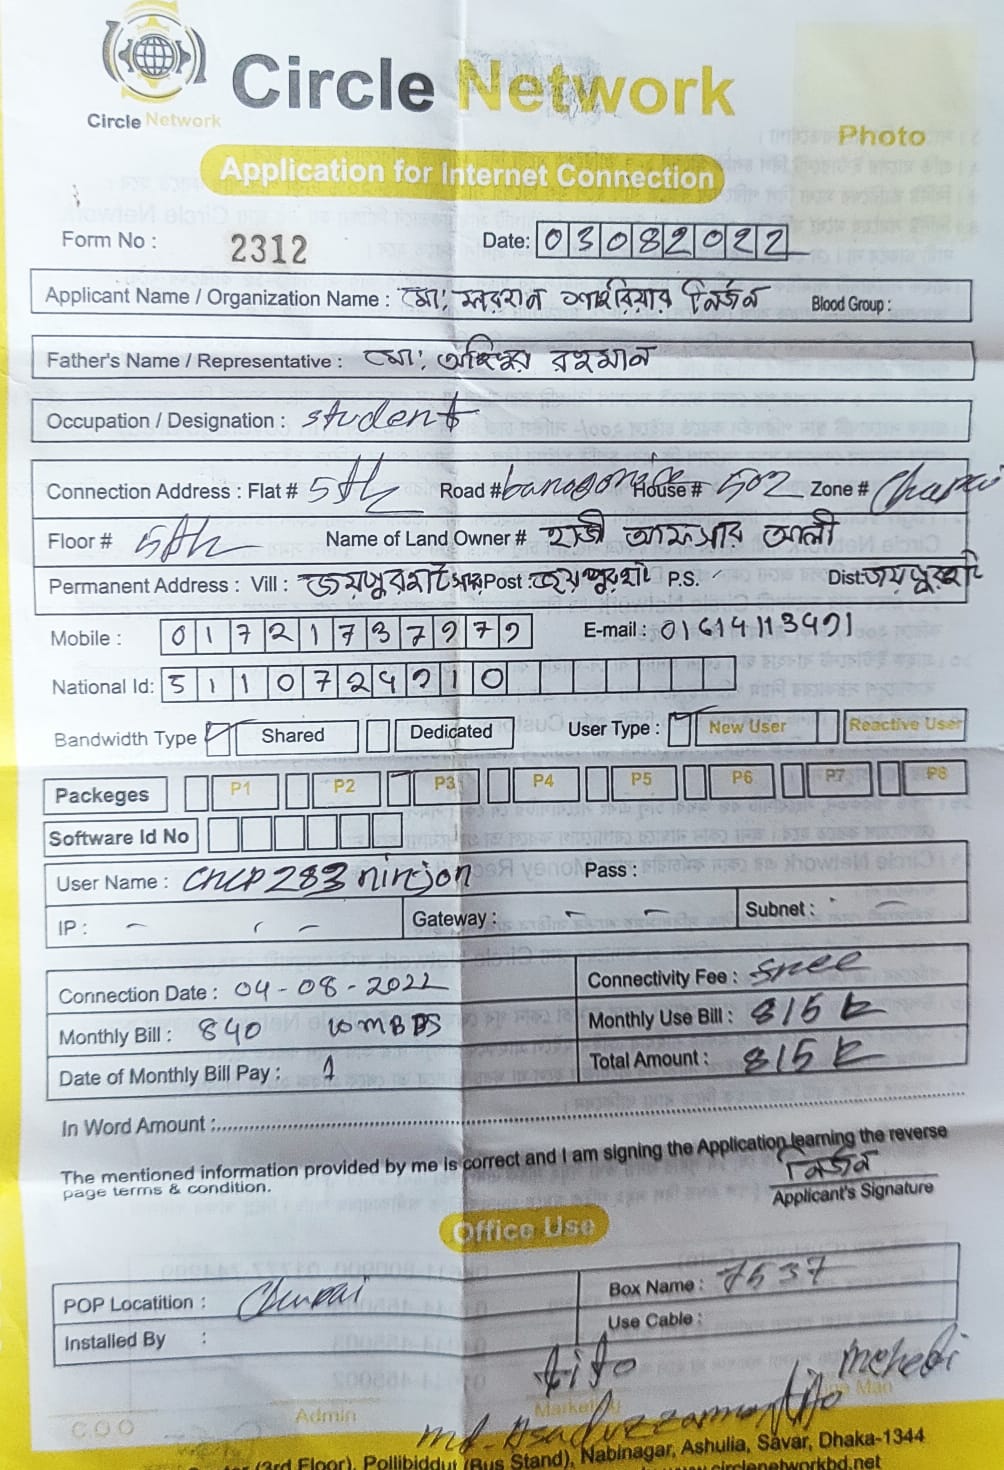 Circle Network
Circle Network
Photo
Application for Internet Connection
Form No : 2312 Date: 03082022
Applicant Name / Organization Name : মো: ফারহান শাহরিয়ার নির্জন Blood Group :
Father's Name / Representative : মো: রহমান
Occupation / Designation : student
Connection Address : Flat # 5th Road # House # 502 Zone #
Floor # 5th Name of Land Owner # হাজী আফসার আলী
Permanent Address : Vill : জয়পুরহাট সদর Post : জয়পুরহাট P.S. Dist: জয়পুরহাট
Mobile : 01721737979 E-mail : 01614113491
National Id: 5110724210
Bandwidth Type Shared Dedicated User Type : New User Reactive User
Packeges P1 P2 P3 P4 P5 P6 P7 P8
Software Id No
User Name : CNCP283ninjon Pass :
IP : - - - Gateway : - - Subnet : -
Connection Date : 04-08-2022 Connectivity Fee :
Monthly Bill : 840 10 MBPS Monthly Use Bill : 815
Date of Monthly Bill Pay : 1 Total Amount : 815
In Word Amount :
The mentioned information provided by me is correct and I am signing the Application learning the reverse
page terms & condition.
নির্জন
Applicant's Signature
Office Use
POP Locatition : Box Name : 7537
Installed By : Use Cable :
tito mehedi
C.O.O Admin Man
Md. Asaduzzaman tito
(3rd Floor), Pollibiddut (Bus Stand), Nabinagar, Ashulia, Savar, Dhaka-1344